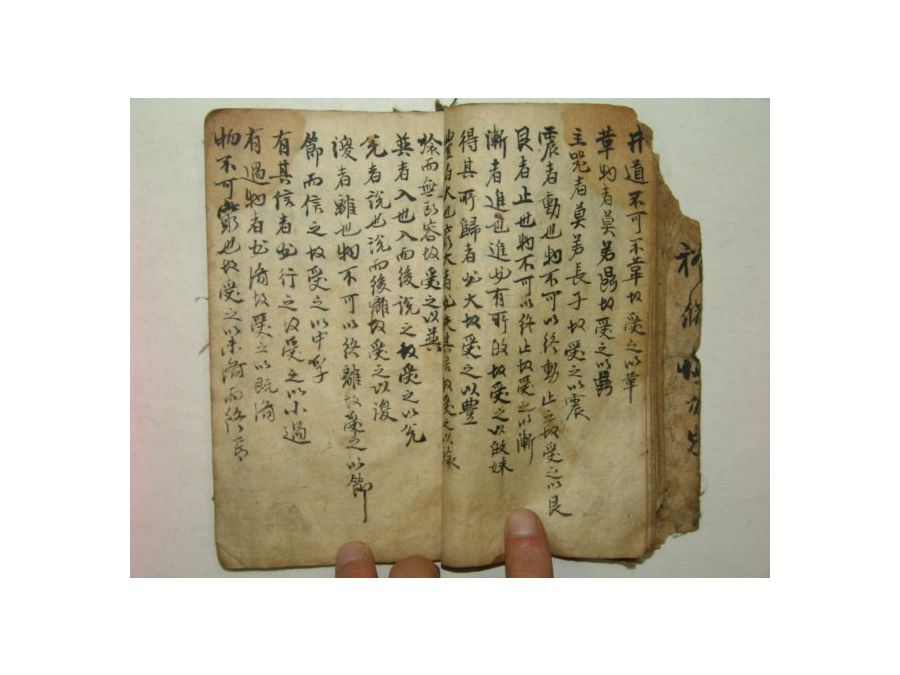 井道不可不革故受之以革
革物者莫若鼎故受之以鼎
主器者莫若長子故受之以震
震者動也物不可以終動止之故受之以艮
艮者止也物不可以終止故受之以漸
漸者進也進必有所故受之以妹
得其所歸者必大故受之以豊
豊者大也窮大者必失其居故受之以旅
旅而無所容故受之以巽
巽者入也入而後說之故受之以兌
兌者說也說而後離故受之以渙
渙者離也物不可以終離故受之以節
節而信之故受之以中孚
有其信者必行之故受之以小過
有過物者必濟故受之以旣濟
物不可窮也故受之以未濟而終焉